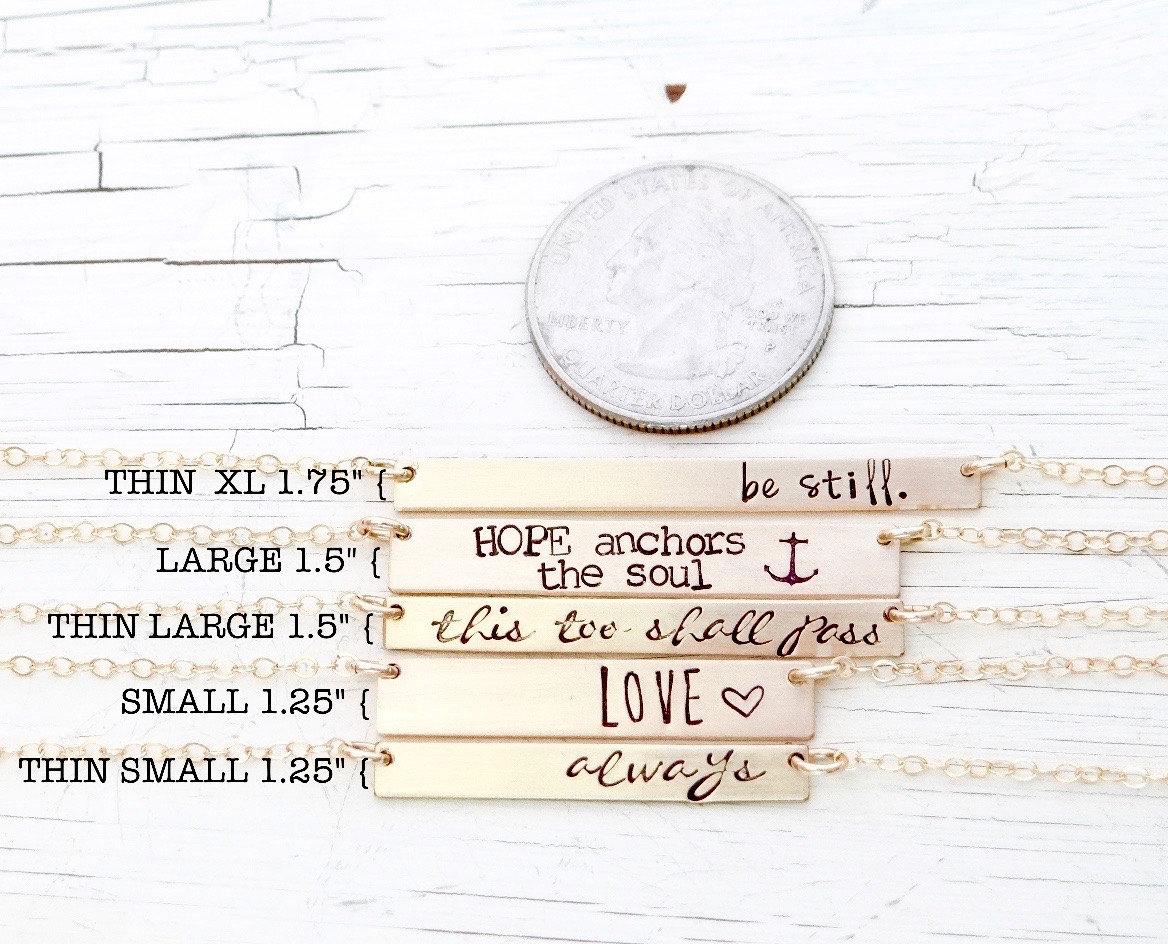 UNITED STATES OF AMERICA
LIBERTY
IN GOD WE
TRUST
P
QUARTER DOLLAR
THIN XL 1.75" {
be still.
LARGE 1.5" {
HOPE anchors
the soul
THIN LARGE 1.5" {
this too shall pass
SMALL 1.25" {
LOVE
THIN SMALL 1.25" {
always